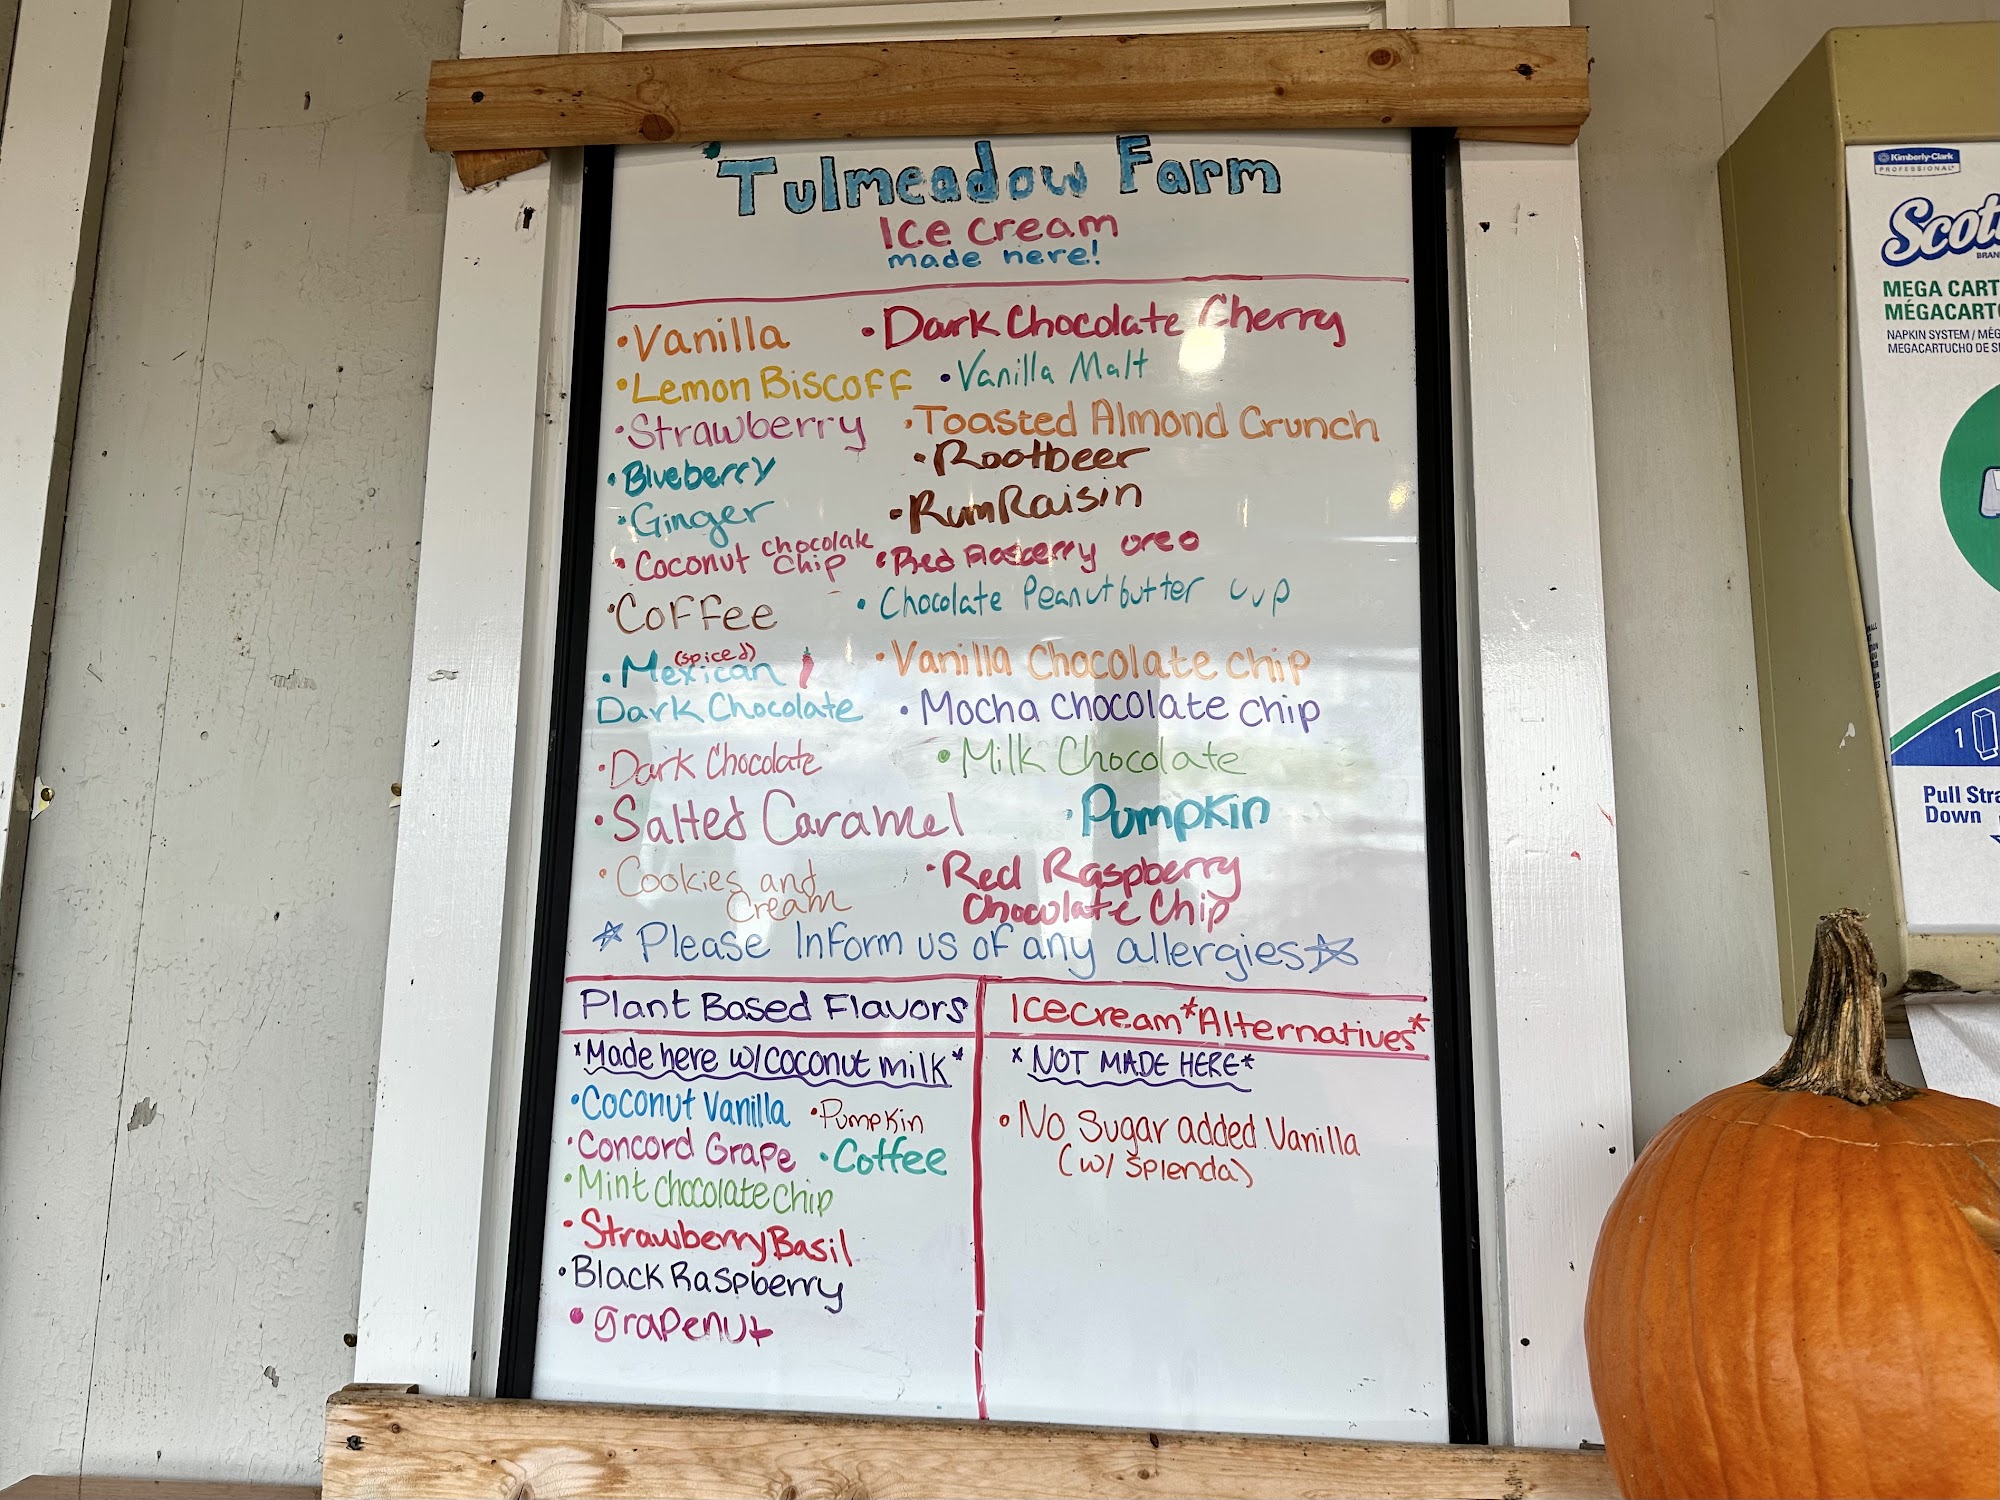 Tulmeadow Farm
Ice cream
made here!
•Vanilla
•Lemon Biscoff
•Strawberry
•Blueberry
•Ginger
•Coconut chocolate chip
•Coffee
•Mexican (spiced)
Dark Chocolate
•Dark Chocolate
•Salted Caramel
•Cookies and
Cream
•Dark Chocolate Cherry
•Vanilla Malt
•Toasted Almond Crunch
•Rootbeer
•Rum Raisin
•Red Rasberry oreo
•Chocolate Peanutbutter cup
•Vanilla Chocolate chip
•Mocha chocolate chip
•Milk Chocolate
•Pumpkin
•Red Raspberry
Chocolate Chip
☆Please Inform us of any allergies☆
Plant Based Flavors
*Made here w/coconut milk*
•Coconut Vanilla
•Concord Grape
•Mint chocolate chip
•Strawberry Basil
•Black Raspberry
•grapenut
•Pumpkin
•Coffee
Icecream*Alternatives*
*NOT MADE HERE*
•No Sugar added Vanilla
(w/ Splenda)
Kimberly-Clark
PROFESSIONAL
Scott
BRAN
MEGA CART
MÉGACARTO
NAPKIN SYSTEM / MÉG
MEGACARTUCHO DE S
1
Pull Stra
Down